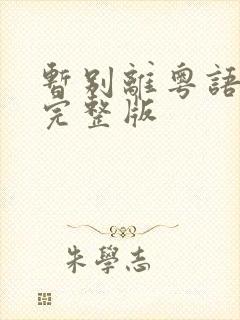 暫別離粵語
完整版
朱學志